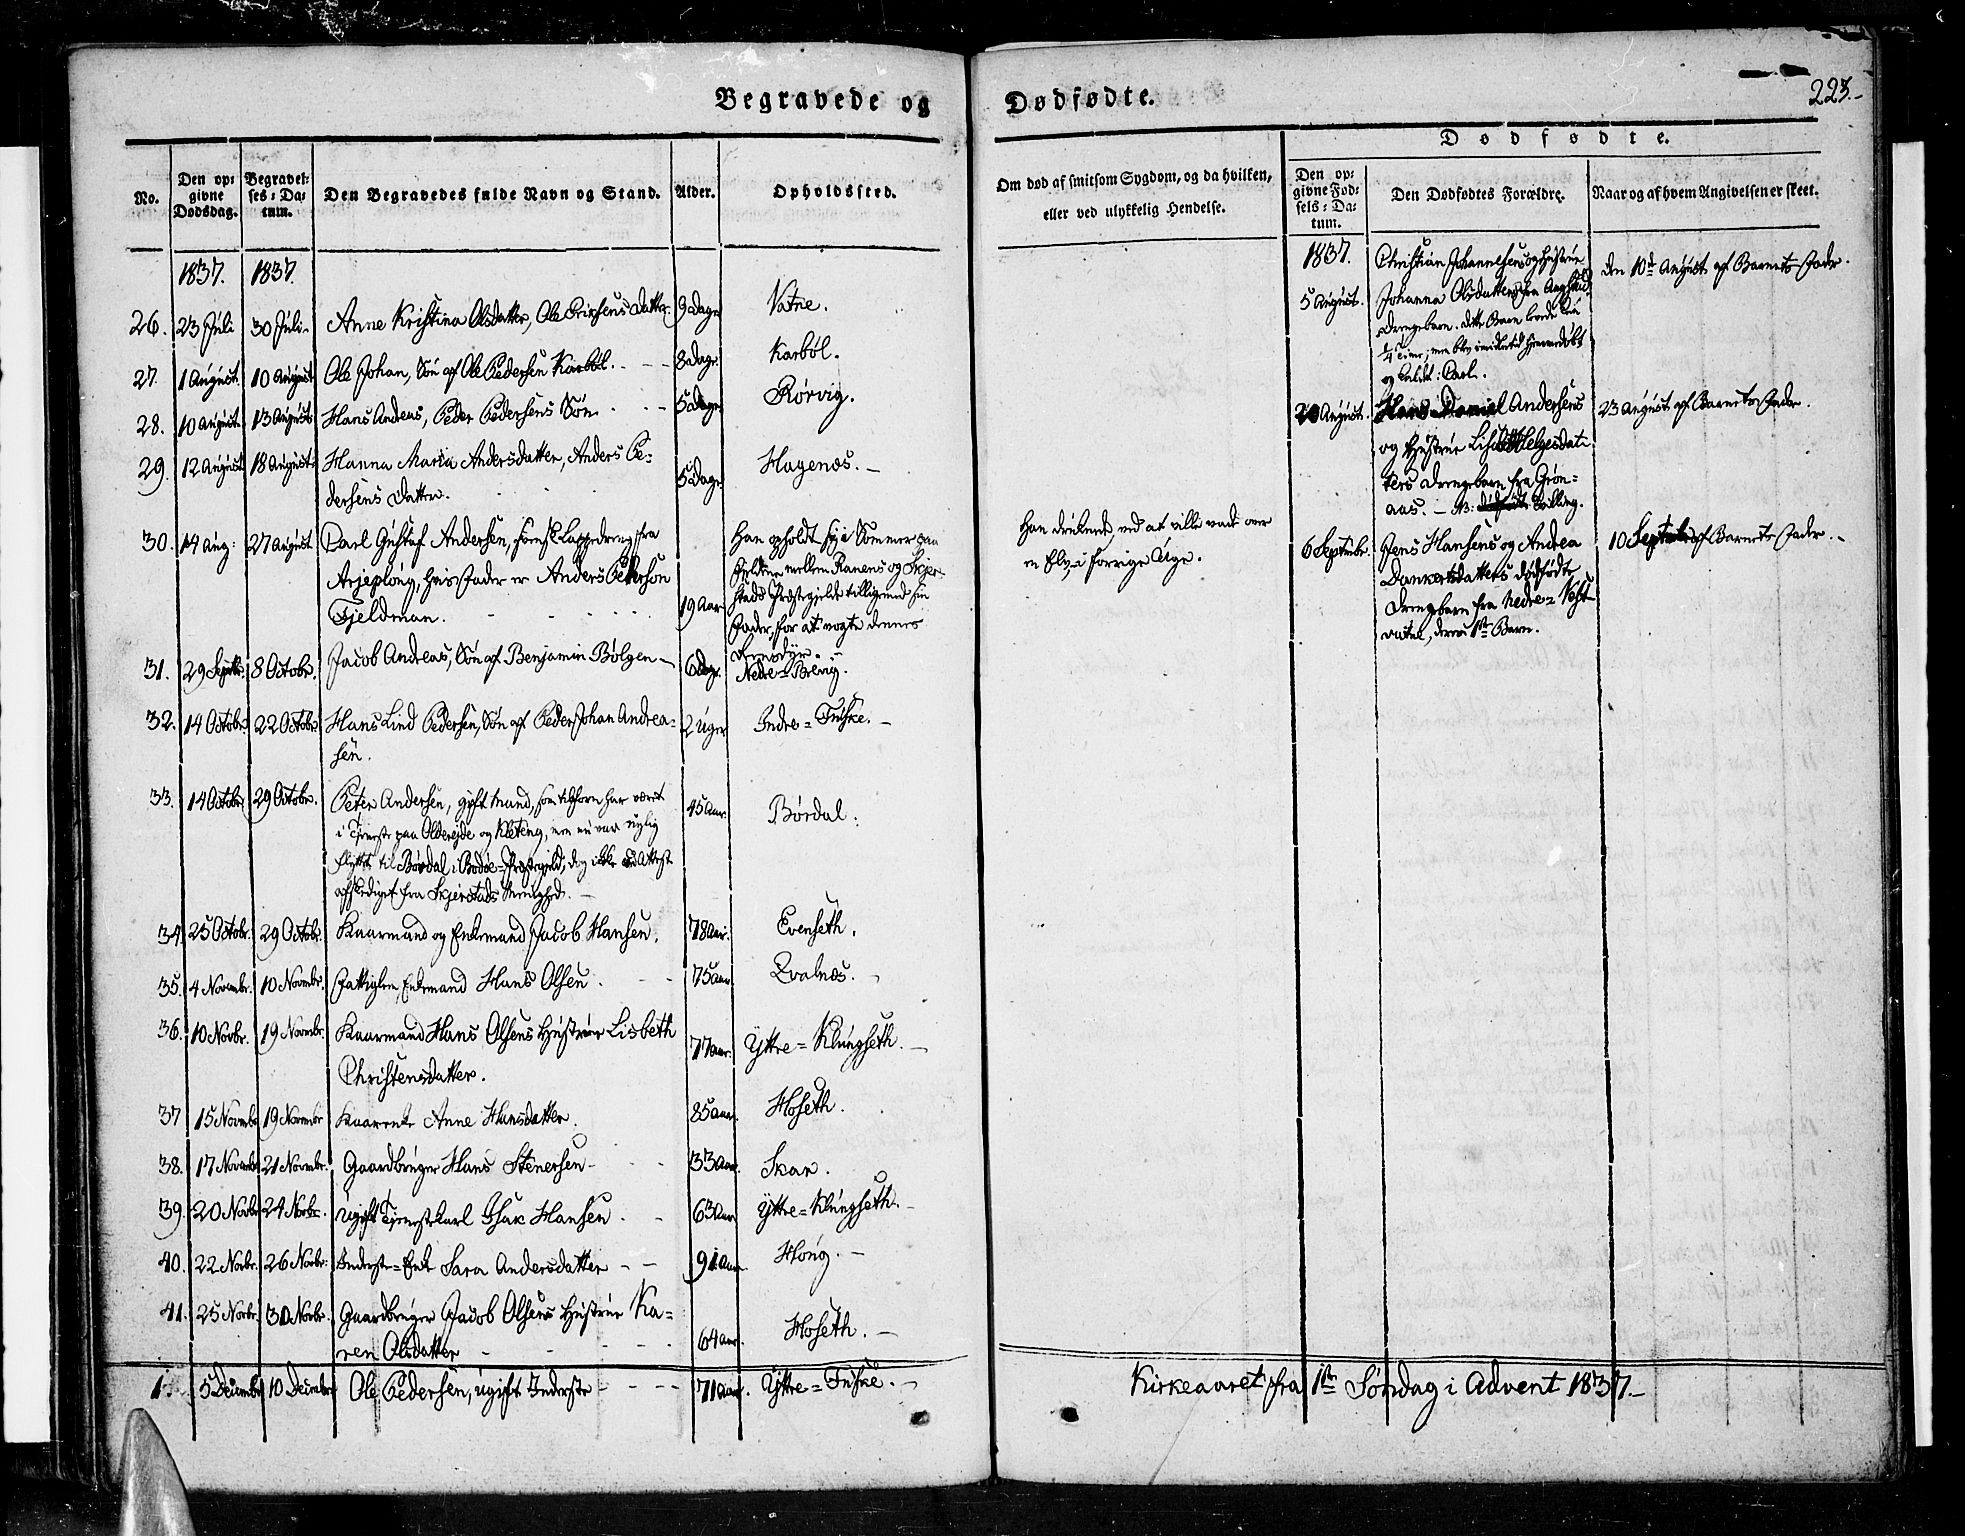 Begravede og Dødfødte.
223.-
No.
Den op=
givne
Dødsdag.
Begravel=
ses=Da=
tum.
Den Begravedes fulde Navn og Stand.
Alder.
Opholdssted.
Om død af smitsom Sygdom, og da hvilken,
eller ved ulykkelig Hendelse.
Dødfødte.
Den op=
givne Fød=
sels=Da=
tum.
Den Dødfødtes Forældre.
Naar og af hvem Angivelsen er skeet.
1837. 1837.
26. 23 Juli 30 Juli Anne Kristina Olsdatter, Ole Erichsens Datter 9 Dage Vatne.
27. 1 August. 10 August Ole Johan, Søn af Ole Pedersen Karbøl. - - 8 Dage Karbøl.
28. 10 August. 13 August Hans Andreas, Peder Pedersens Søn. - - 5 Dage Rørvig.
29. 12 August 18 August Hanna Maria Andersdatter, Anders Pe=
dersens Datter. 5 Dage Hagenæs. -
30. 14 Aug: 27 August Carl Gustaf Andersen, Lappedreng fra
Arjeplong, hvis Fader er Anders Pederson
Fjeldman. - - - - 19 Aar
Han opholdt sig i Sommer paa
Fjeldene mellem Ranens og Skjer=
stads Præstegjelde tilligemed sin
Fader, for at vogte dennes
Rensdyr. -
Han druknede ved at ville vade over
en Elv i forrige Uge.
31. 29 Septbr. 8 Octobr. Jacob Andreas, Søn af Benjamin Bølgen - 6 Dage. Nedre=Brevig.
32. 14 Octobr 22 Octobr Hans Lind Pedersen, Søn af Peder Johan Andrea=
sen. 2 Uger Indre=Fuske. -
33. 14 Octobr 29 Octobr. Peter Andersen, gift Mand, som tilforn har været
i Tjeneste paa Oldereide og Kleteng, men nu var nylig
flyttet til Børdal i Bodøe=Præstegjeld, dog ikke ved Attest
afskediget fra Skjerstads Menighed. - 45 Aar. Børdal.
34. 25 Octobr. 29 Octobr. Kaarmand og Enkemand Jacob Hansen. 78 Aar. Evenseth.
35. 4 Novembr. 10 Novembr. Fattiglem, Enkemand Hans Olsen. - - 75 Aar Kvalnæs. -
36. 10 Novbr. 19 Novembr. Kaarmand Hans Olsens Hustrue Lisbeth
Christensdatter. 77 Aar. Yttre=Klungseth. -
37 15 Novembr 19 Novembr Kaarenke Anne Hansdatter. 85 Aar. Hoseth.
38. 17 Novembr 21 Novembr. Gaardbruger Hans Stenersen - - 33 Aar. Skar.
39. 20 Novbr 24 Novbr. Ugift Tjenestekarl Isak Hansen. - 63 Aar Yttre=Klungseth. -
40. 22 Novbr. 26 Novbr. Inderste=Enke Sara Andersdatter - - 91 Aar. Hong. -
41. 25 Novbr. 30 Novbr. Gaardbruger Jacob Olsens Hustrue Ka=
ren Olsdatter - - - - 64 Aar Hoseth. -
1. 5 Decembr 10 Decembr Ole Pedersen, ugift Inderste - - - 71 Aar. Yttre=Fuske. -
Kirkeaaret fra 1ste Søndag i Advent 1837.-
1837.
5 August.
Christian Johannesens og Hustrue
Johanna Olsdatters fra
Drengebarn. Dette Barn levede kun
¼ Time; men blev imidlertid hjemmedøbt
og kaldet: Carl.
Den 10de August af Barnets Fader.
20 August. Hans Daniel Andersens
og Hustrue Lisbeth Helgesdat=
ters Drengebarn fra Grøn=
aas. - NB: dødfødt Tvilling.
23 August af Barnets Fader.
6 Septembr. Jens Hansens og Andrea
Dankertsdatters dødfødte
Drengebarn fra Nedre=Vest
vatne, deres 1ste Barn.
10 Septembr af Barnets Fader. -